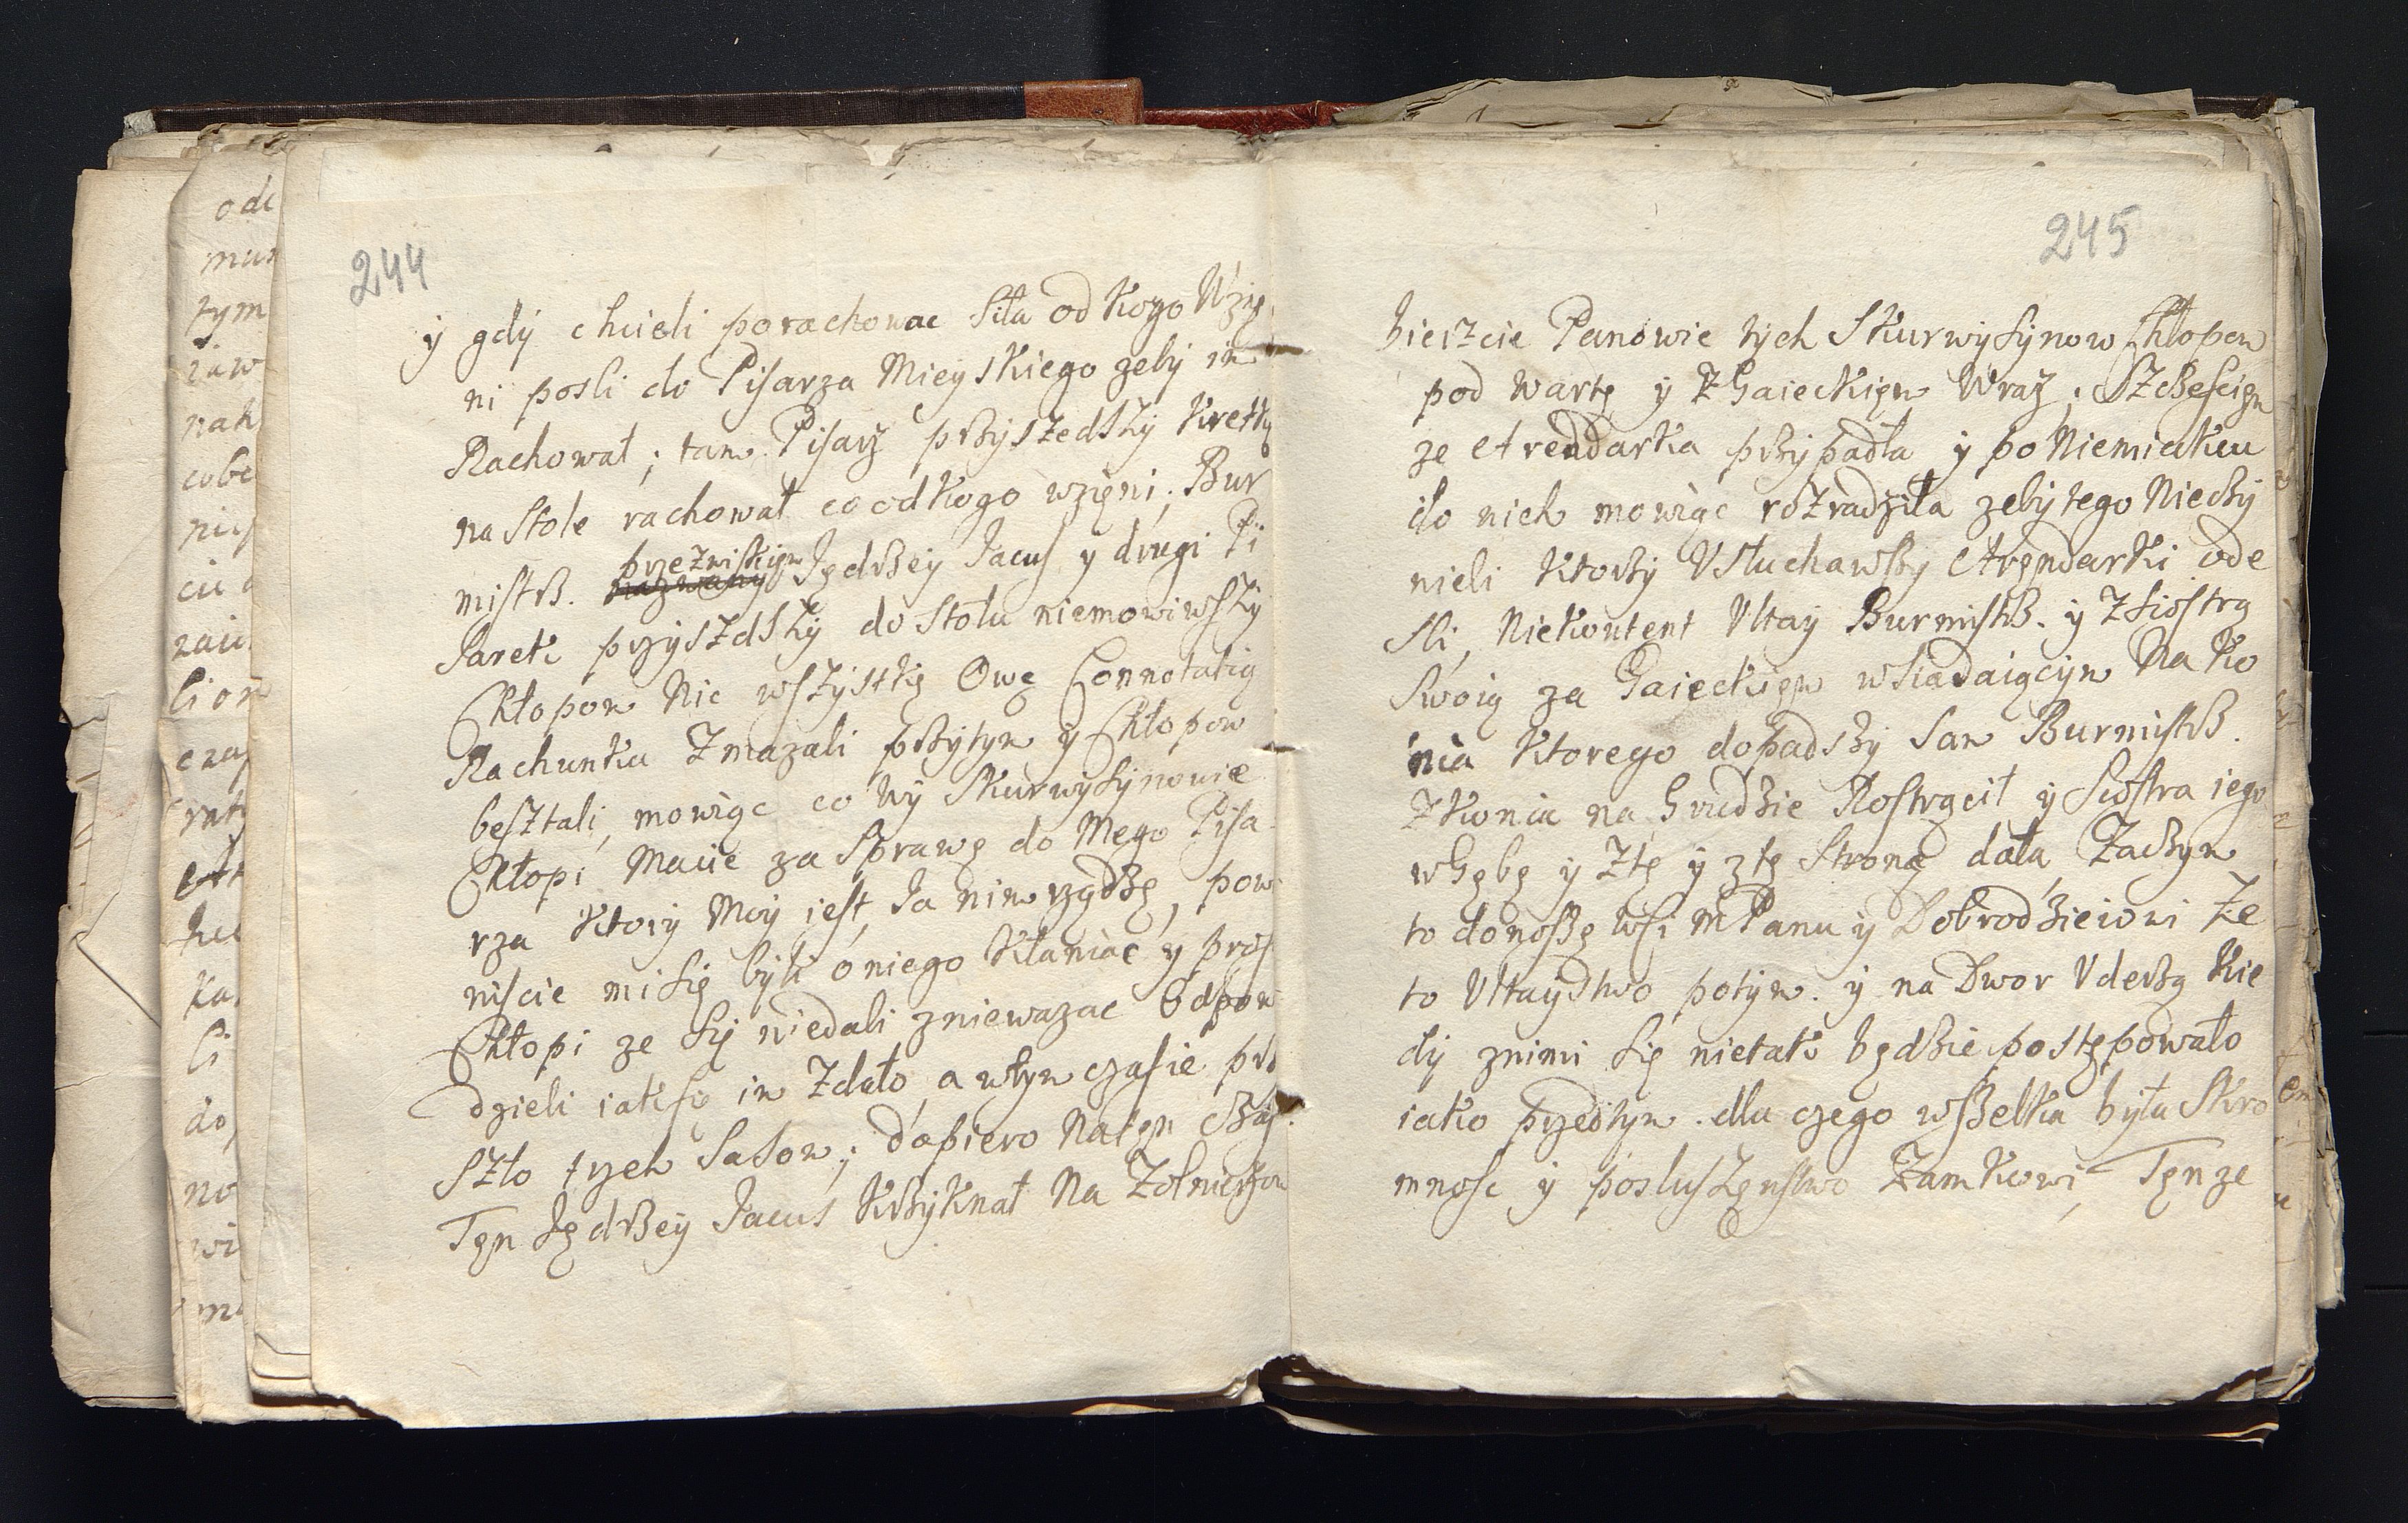 244
ÿ gdÿ chcieli porachowac siła od kogo Wzię
ni posli do Pisarza Mieyskiego zebÿ im
Rachował; tam Pisarz prßyszedszÿ kretką
na stole rachował co od kogo wzięni; Bur
mistrß. przezwiskiem Jędrßeÿ Jacus y drugi Pi
sarek przyszdszÿ do stołu niemowiwszÿ
Chłopom Nic wszÿstkię Owę Connotatię
Rachunku Zmazali prßytym ÿ Chłopow
besztali, mowiąc co Wÿ skurwysÿnowie
Chłopi Macie za sprawę do Mego Pisa
rza Ktorÿ Moÿ iest, Ja nim rządzę, pow
niscie mi się bÿli o niego kłaniac y pros
Chłopi ze się niedali zniewazac Odpow
dzieli iak się im Zdało, a wtym czasie prß
szło trzech Sasow; dopiero Naten czas
Ten Jędrßeÿ Jacus krßyknał Na Zołnierzow
245
bierzcie Panowie tÿch Skurwÿsÿnow Chłopow
pod wartę ÿ Z Gaieckięm Wraz; Szczesciem
ze Arendarka prßÿpadła ÿ po Niemiecku
do nich mowiąc rozradziła zebÿ tego Niecßÿ
nieli Ktorßÿ Usłuchawszÿ Arendarki ode
sli, Niekontent Ultaÿ Burmistrß. ÿ Z siostrą
Swoią za Gaieckięm wsiadaiącÿm Na Ko
nia Ktorego dopadszÿ sam Burmistrß.
Z konia na Grudzie Rostrącił ÿ Siostra iego
w Gębę ÿ Z tę ÿ z tę Stronę dała, Zacßym
to donoszę WsiMPanu ÿ Dobrodzieiowi Ze
to Ultaÿstwo potym. ÿ na Dwor Uderßą Kie
dÿ znimi się nietak będzie postępowało
iako przedtÿm. dla czego wßelka bÿła Skro
mnosc ÿ posłuszęnstwo Zamkowi, Tęn ze